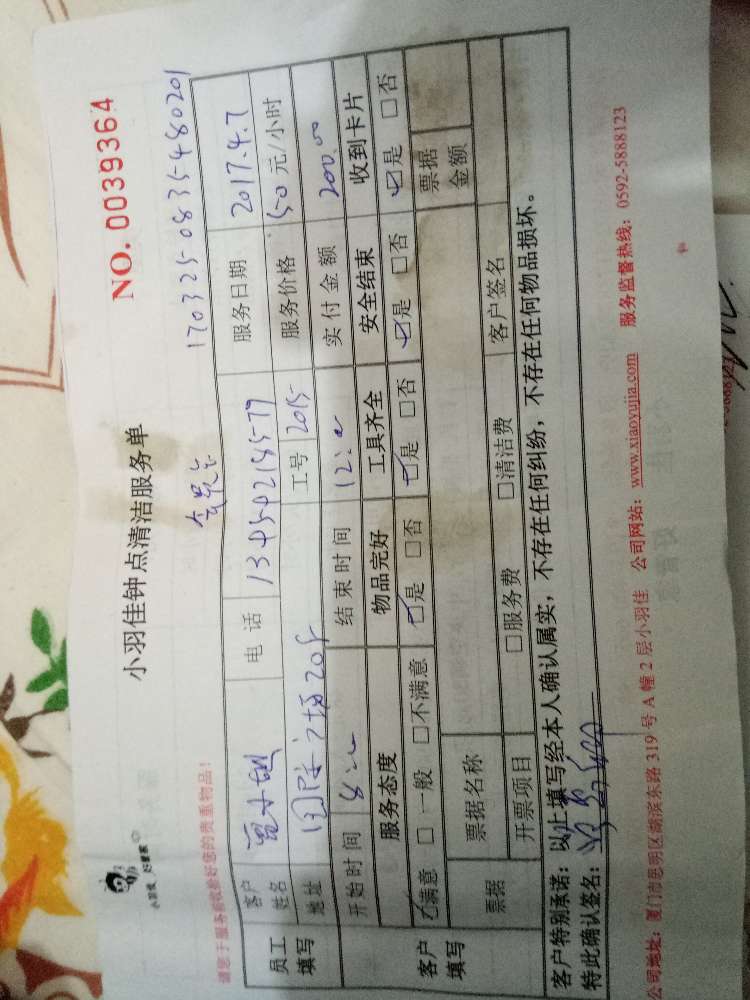 小羽佳 好管家
小羽佳钟点清洁服务单
NO. 0039364
请您于服务前收拾好您的贵重物品!
170325-0835-480201
员工填写 客户姓名 电话 服务日期 2017.4.7
地址 国际广场20 工号 2015 服务价格 50 元/小时
开始时间 8: 结束时间 12: 实付金额 200.00
客户填写 服务态度 物品完好 工具齐全 安全结束 收到卡片
☑满意 □一般 □不满意 ☑是 □否 ☑是 □否 ☑是 □否 ☑是 □否
票据 票据名称 票据金额
开票项目 □服务费 □清洁费 客户签名
客户特别承诺:以上填写经本人确认属实,不存在任何纠纷,不存在任何物品损坏。
特此确认签名:
公司地址:厦门市思明区湖滨东路 319 号 A 幢 2 层小羽佳 公司网站:www.xiaoyujia.com 服务监督热线:0592-5888123